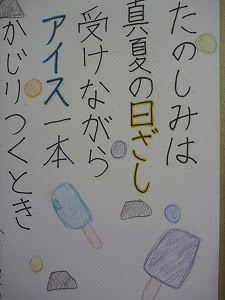 たのしみは
真夏の日ざし
受けながら
アイス一本
かじりつくとき